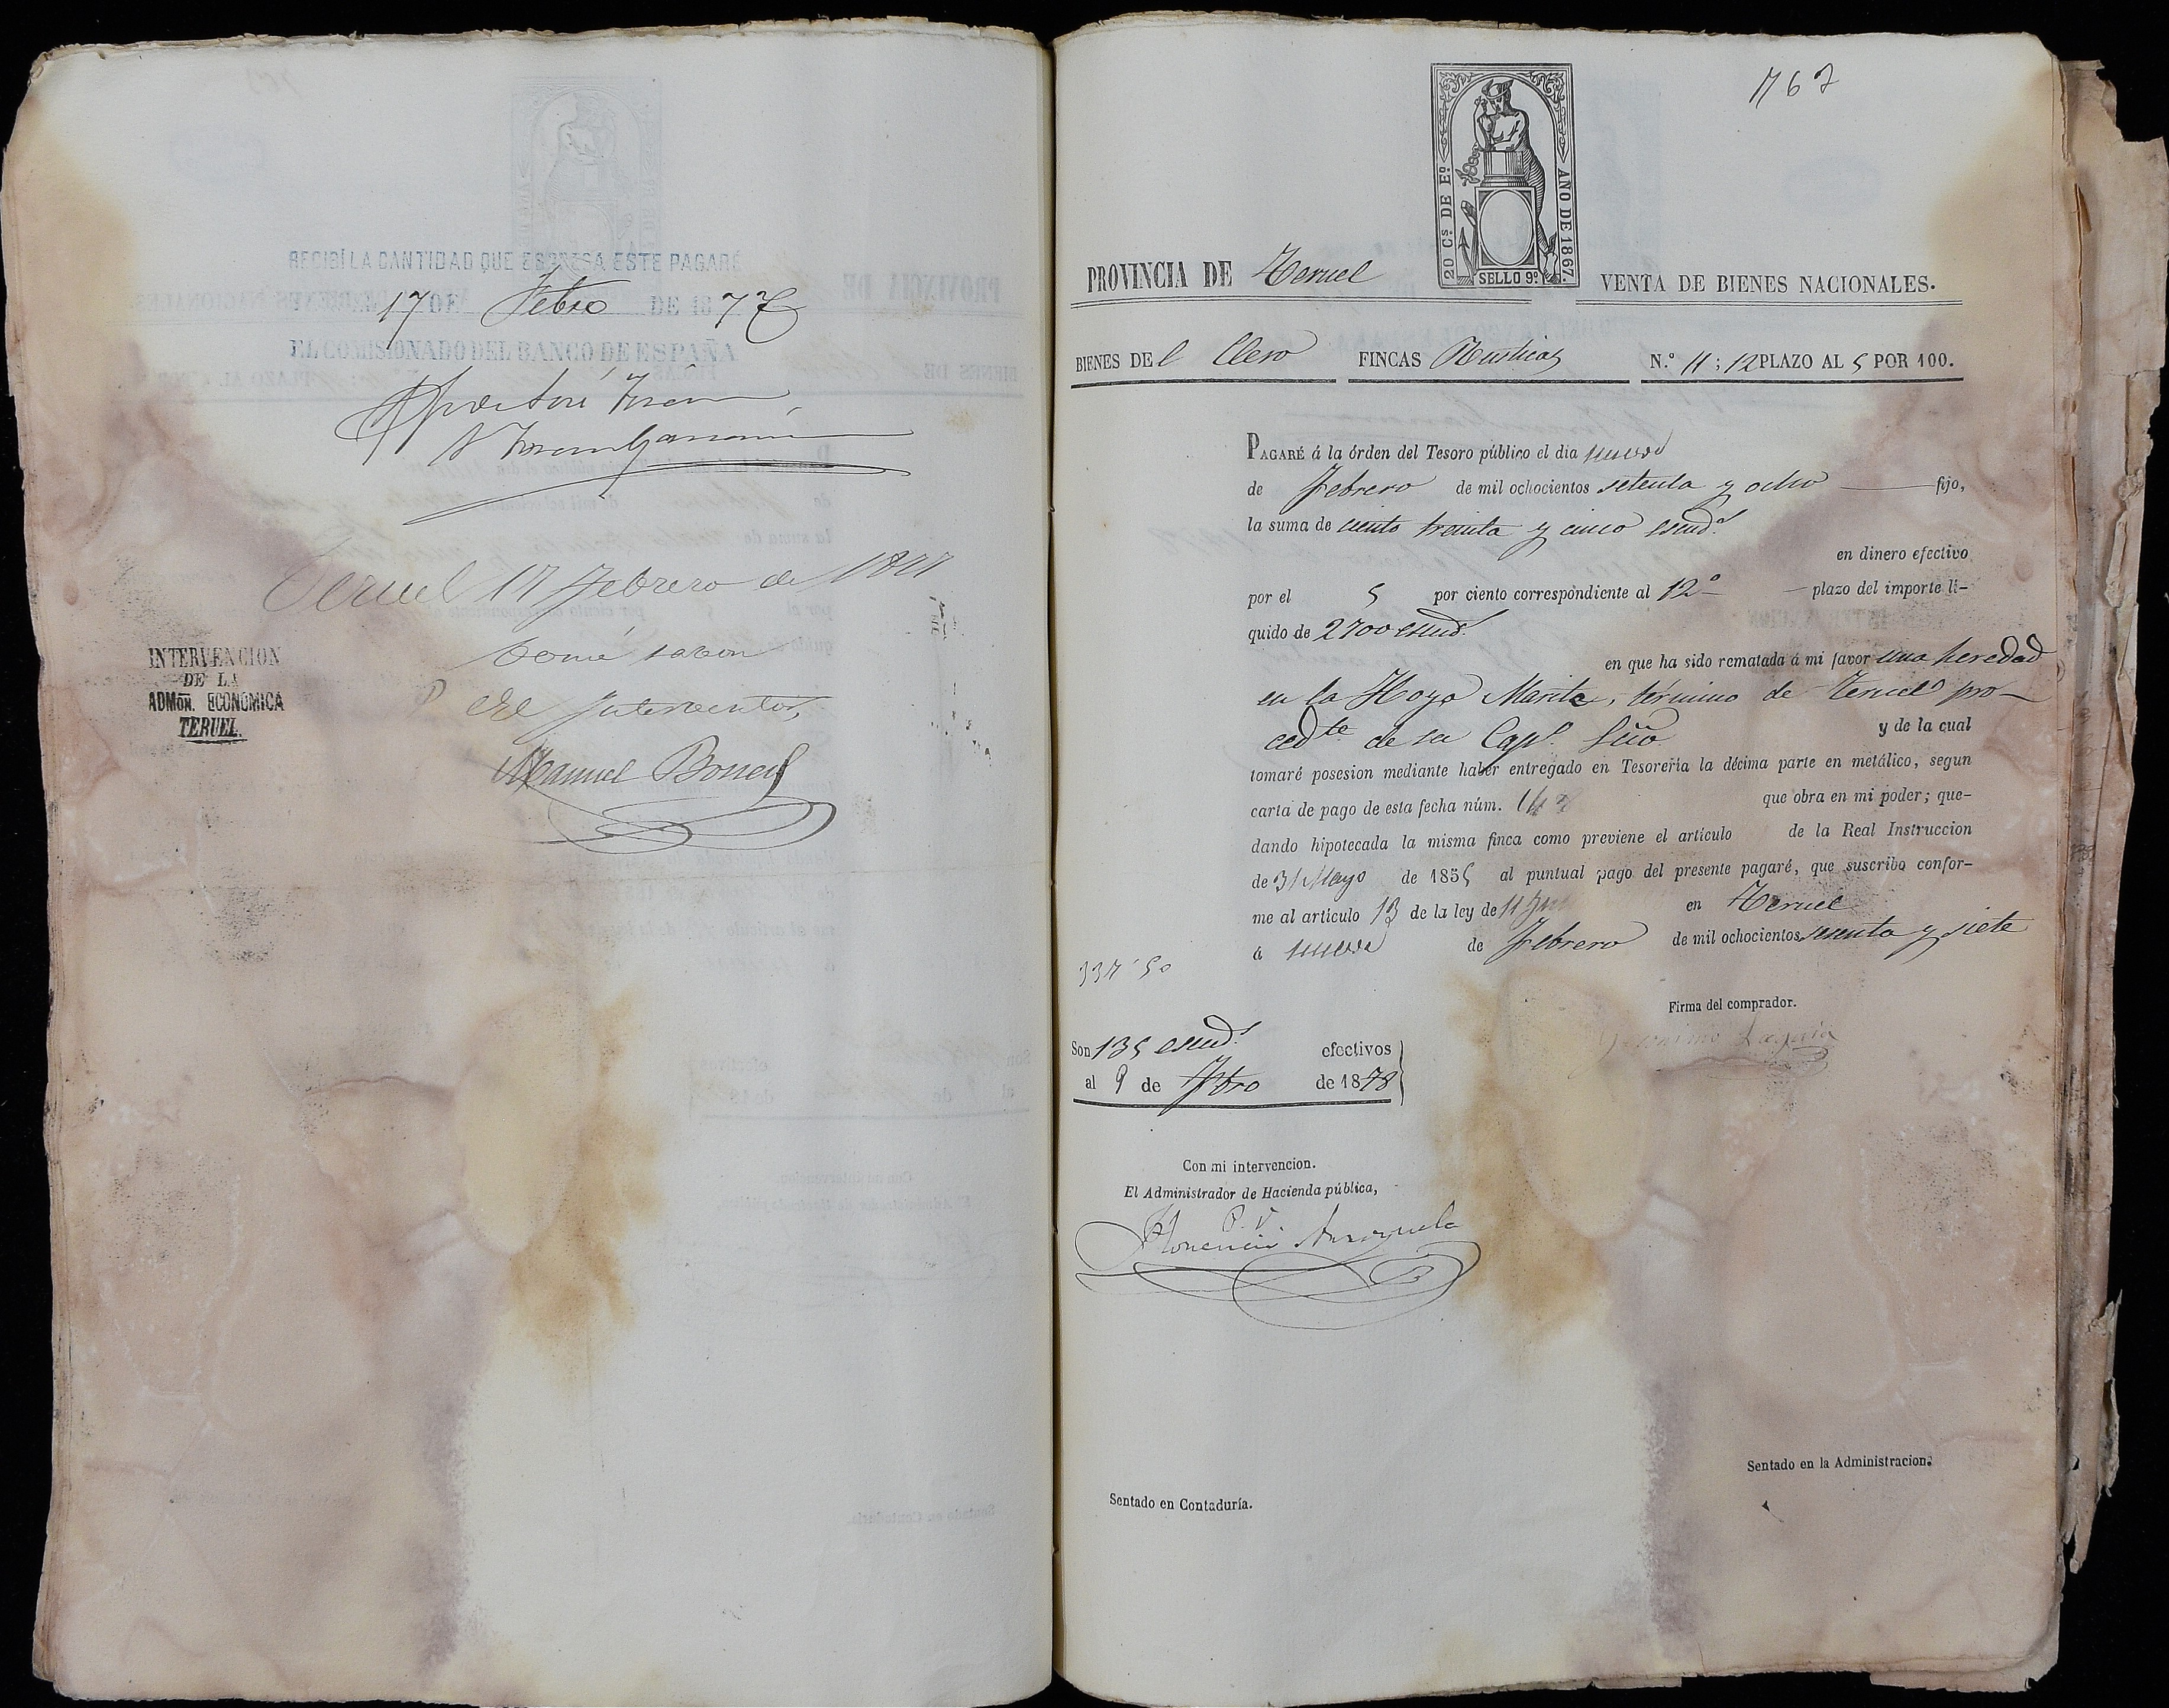 RECIBÍ LA CANTIDAD QUE ESPRESA ESTE PAGARÉ
17 DE Febro DE 1877
EL COMISIONADO DEL BANCO DE ESPAÑA
José
Teruel 17 Febrero de 1877
Tomé razon
El Interventor,
Manuel
INTERVENCION
DE LA
ADMÓN. ECONÓMICA
TERUEL.
767
20 Cs. DE Eº.
AÑO DE 1867.
SELLO 9º.
PROVINCIA DE Teruel
VENTA DE BIENES NACIONALES.
BIENES DEl Clero FINCAS Rusticas N.º 11; 12 PLAZO AL 5 POR 100.
PAGARÉ á la órden del Tesoro público el dia nueve
de Febrero de mil ochocientos setenta y ocho fijo,
la suma de ciento treinta y cinco escud.s
en dinero efectivo
por el 5 por ciento correspondiente al 12º plazo del importe lí-
quido de 2700 escud.s
en que ha sido rematada á mi favor una heredad
en la Hoya Marita, término de Teruel pro-
cedte de su Capl.
y de la cual
tomaré posesion mediante haber entregado en Tesorería la décima parte en metálico, segun
carta de pago de esta fecha núm. que obra en mi poder; que-
dando hipotecada la misma finca como previene el artículo de la Real Instruccion
de 31 Mayo de 1855 al puntual pago del presente pagaré, que suscribo confor-
me al artículo 13 de la ley de 11 en Teruel
á nueve de Febrero de mil ochocientos sesenta y siete
337'50
Firma del comprador.
Son 135 escud.s efectivos
al 9 de Fbro de 1878
Con mi intervencion.
El Administrador de Hacienda pública,
P. V.
Florencio
Sentado en la Administracion.
Sentado en Contaduría.